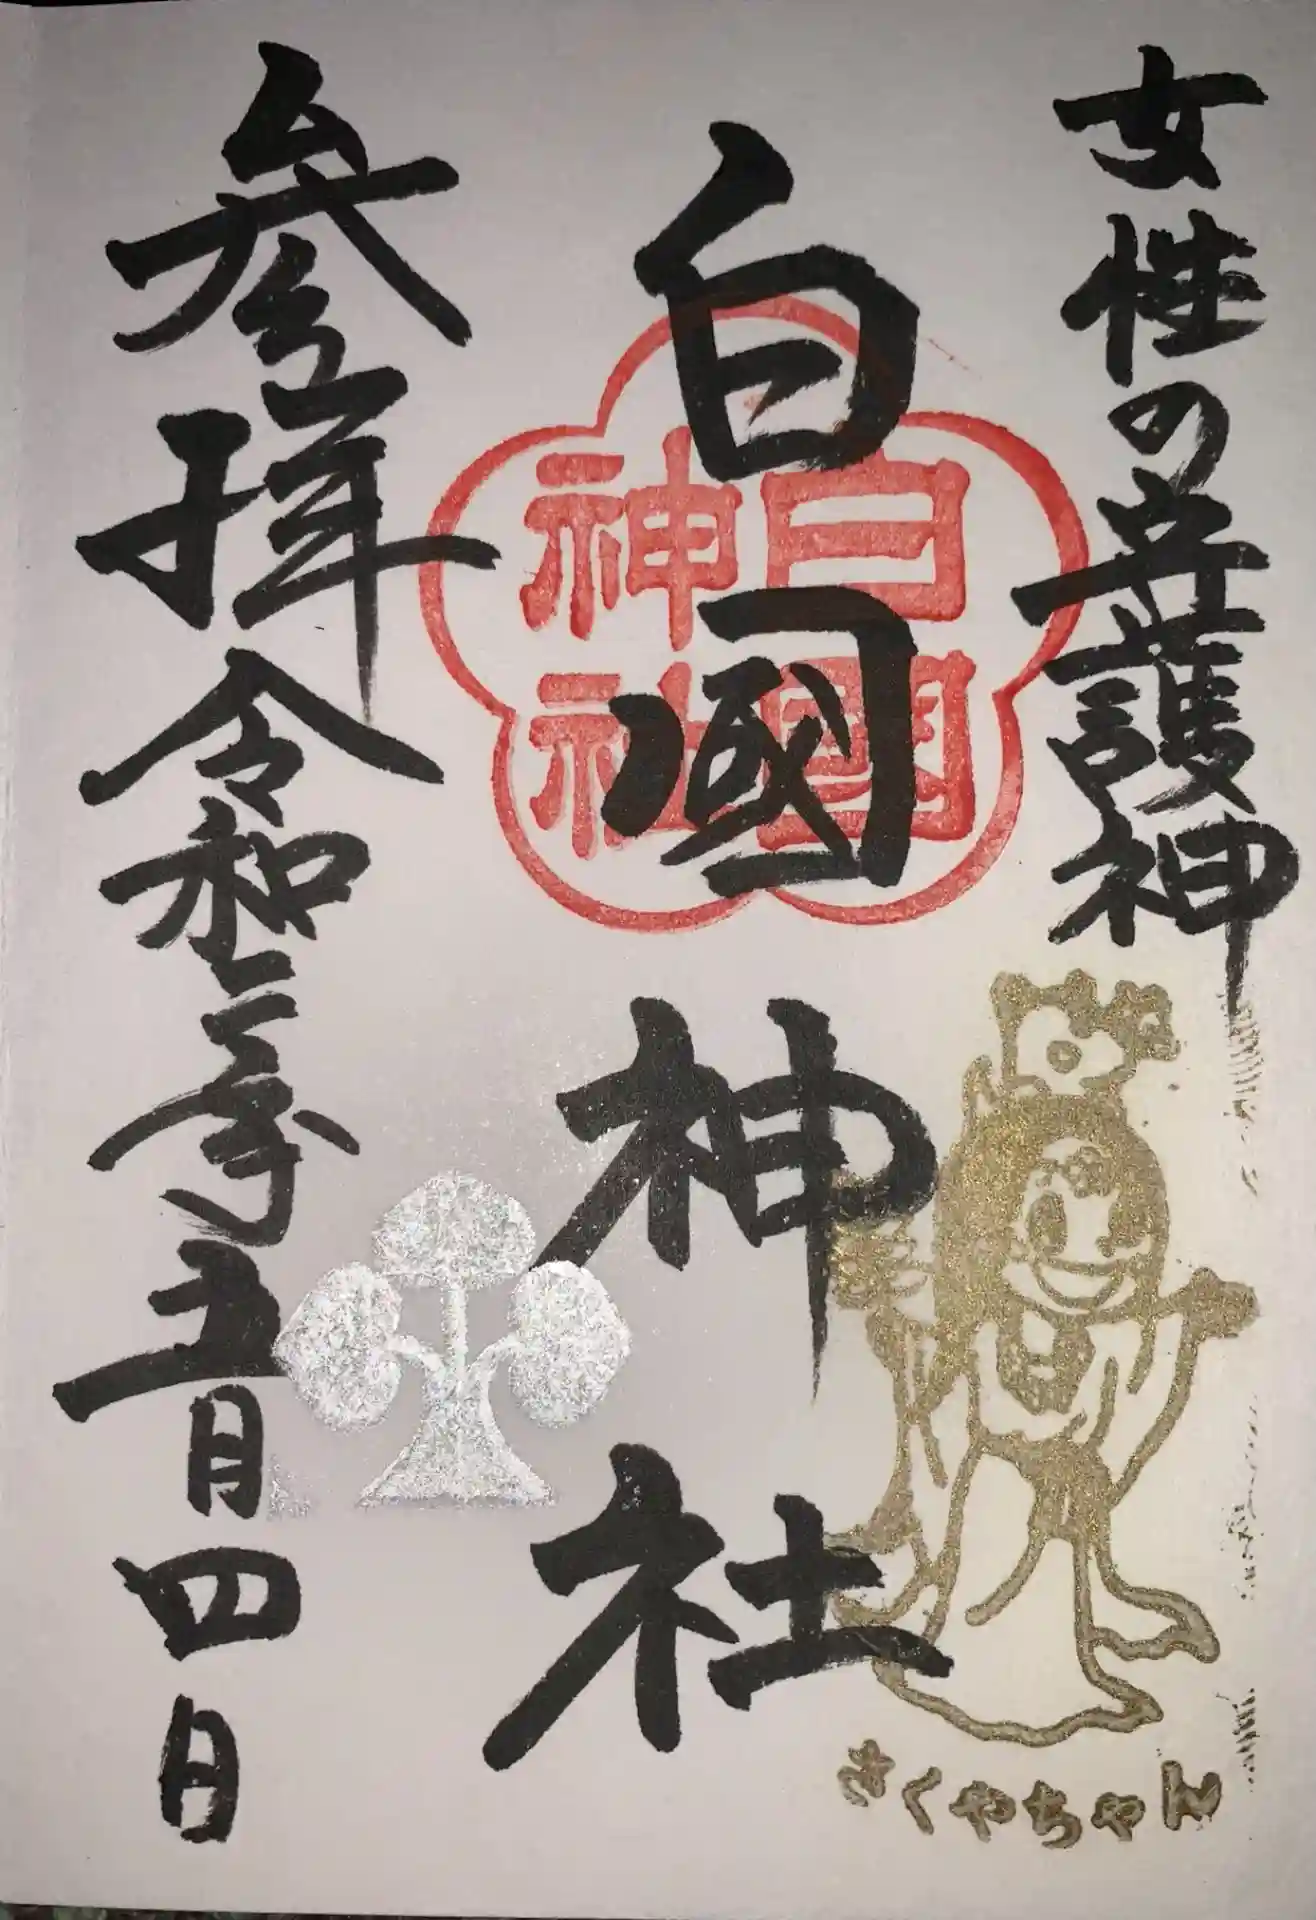 女性の守護神
白國神社
参拝 令和三年五月四日
白國
神社
さくやちゃん